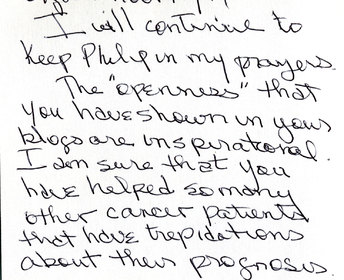 I will continue to
keep Philip in my prayers.
The "openness" that
you have shown in your
blogs are inspirational.
I am sure that you
have helped so many
other cancer patients
that have trepidations
about their prognosis.